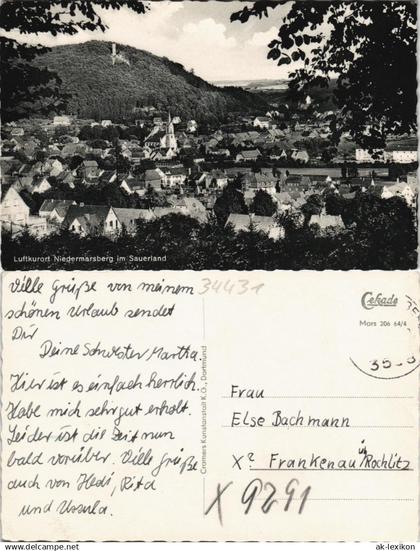 Luftkurort Niedermarsberg im Sauerland
Ville Grüße von meinem
schönen Urlaub sendet
Dir
Deine Schwester Martha.
Hier ist es einfach herrlich.
Habe mich sehr gut erholt.
Leider ist die Zeit nun
bald vorüber. Ville Grüße
auch von Hedi, Rita
und Ursula.
34431
Cramers Kunstanstalt K.G., Dortmund
Cekade
Mars 206 64/4
35
Frau
Else Bachmann
X? Frankenau ü/Rochlitz
X 9291
www.ansichtskarten-lexikon.de
ak-lexikon.de